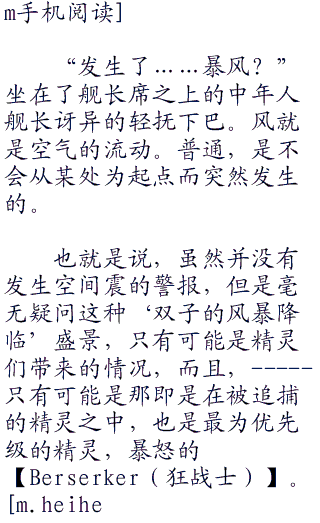 m手机阅读]
“发生了……暴风？”
坐在了舰长席之上的中年人
舰长讶异的轻抚下巴。风就
是空气的流动。普通，是不
会从某处为起点而突然发生
的。
也就是说，虽然并没有
发生空间震的警报，但是毫
无疑问这种‘双子的风暴降
临’盛景，只有可能是精灵
们带来的情况，而且，-----
只有可能是那即是在被追捕
的精灵之中，也是最为优先
级的精灵，暴怒的
【Berserker（狂战士）】。
[m.heihe